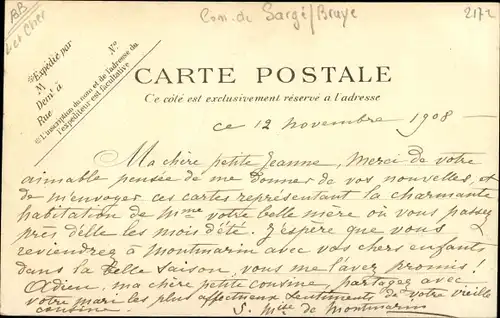 BB
Loir et Cher
Con. de Sargé/Braye
2172
Expédié par
M
Dem.t à
Rue
No
L'inscription du nom et de l'adresse du
l'expéditeur est facultative
CARTE POSTALE
Ce côté est exclusivement réservé a l'adresse
ce 12 novembre 1908 —
Ma chère petite Jeanne, Merci de votre
aimable pensée de me donner de vos nouvelles, et
de m'envoyer ces cartes représentant la charmante
habitation de Mme votre belle mère où vous passez
près d'elle les mois d'été. J'espère que vous
reviendrez à Montmarin avec vos chers enfants
dans la belle saison, vous me l'avez promis!
Adieu, ma chère petite cousine, partagez avec
votre mari les plus affectueux sentiments de votre vieille
cousine.
S. Mise de Montmarin